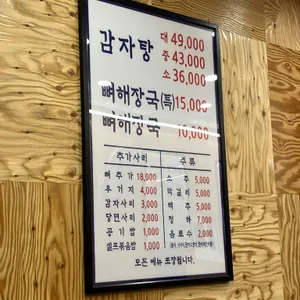 감자탕 대 49,000
중 43,000
소 36,000
뼈해장국(특) 15,000
뼈해장국 10,000
추가사리
뼈추가 18,000
우거지 4,000
감자사리 3,000
당면사리 2,000
공기밥 1,000
셀프볶음밥 1,000
주류
소주 5,000
막걸리 5,000
맥주 5,000
청하 7,000
음료수 2,000
모든 메뉴 포장됩니다.